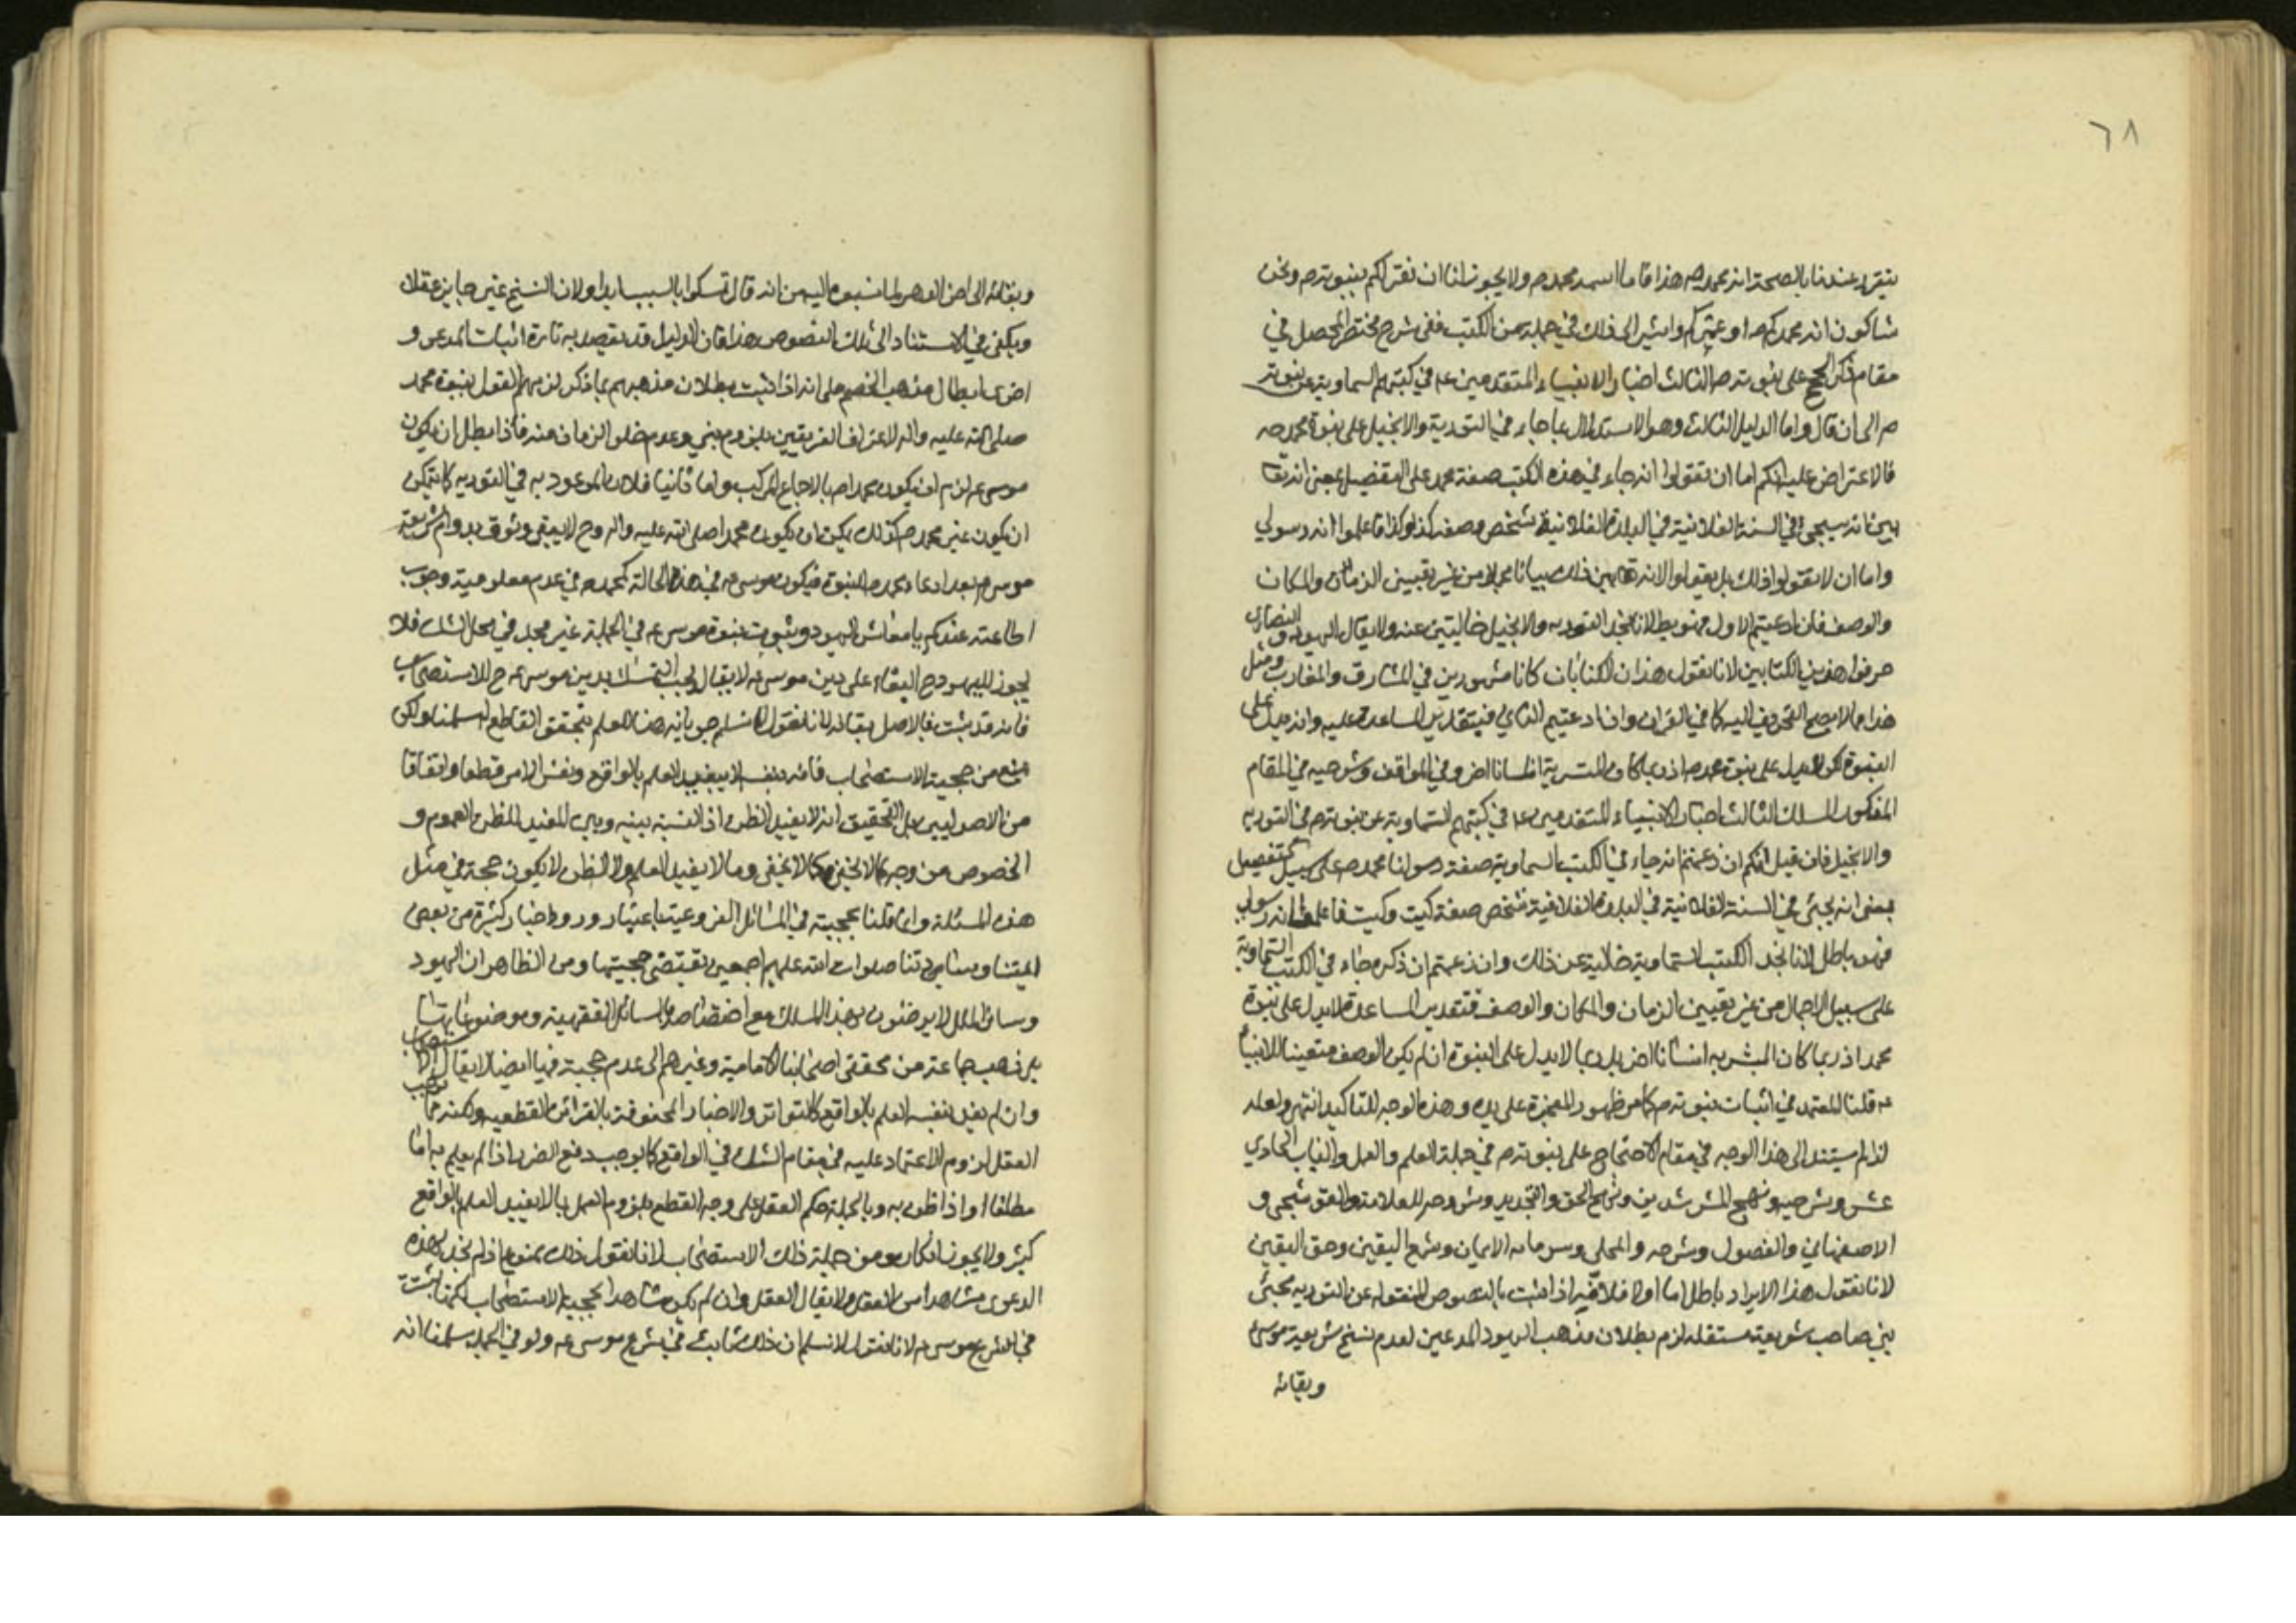 ٦٨
يتقرر عندنا بالصحة انه محمدكم هذا فاما اسمه محمد ص ولا يجوز لنا ان نقر لكم بنبوته ص ونحن
شاكون انه محمدكم او غيركم واشير الى ذلك في جملة من الكتب ففي شرح مختصر المحصل في
مقام ذكر الحجج على نبوته ص الثالث اخبار الانبياء المتقدمين عم في كتبهم السماوية عن نبوته
ص الى ان قال واما الدليل الثالث وهو الاستدلال بما جاء في التورية والانجيل على نبوة محمد ص
فالاعتراض عليه انكم اما ان تقولوا انه جاء في هذه الكتب صفة محمد على التفصيل بمعنى انه تعا
بين انه سيجئ في السنة الفلانية في البلدة الفلانية شخص وصفه كذا وكذا فاعلموا انه رسولي
واما ان لا تقولوا ذلك بل يقولوا الانه تعا بين ذلك بيانا مجملا من غير تعيين الزمان والمكان
والوصف فان ادعيتم الاول فهو باطل لانا نجد التورية والانجيل خاليتين عنه ولا يقال اليهود والنصارى
حرفوا هذين الكتابين لانا نقول هذان الكتابان كانا مشهورين في المشارق والمغارب ومثل
هذا مما لا يصح التحريف اليه كما في القران وان ادعيتم الثاني فبتقدير المساعدة عليه وانه يدل على
النبوة لكن لا يدل على نبوة محمد ص اذ ربما كان المبشر به انسانا اخر وفي المواقف وشرحيه في المقام
المذكور المسلك الثالث اخبار الانبياء المتقدمين عم في كتبهم السماوية عن نبوته ص في التورية
والانجيل فان قيل انكم ان زعمتم انه جاء في الكتب السماوية صفة رسولنا محمد ص على سبيل التفصيل
بمعنى انه يجئ في السنة الفلانية في البلدة الفلانية شخص صفة كيت وكيت فاعلموا انه رسولي
فهو باطل لانا نجد الكتب السماوية خالية عن ذلك وان زعمتم ان ذكره جاء في الكتب السماوية
على سبيل الاجمال من غير تعيين الزمان والمكان والوصف فبتقدير المساعدة لا يدل على نبوة
محمد اذ ربما كان المبشر به انسانا اخر بل ربما لا يدل على النبوة ان لم يكن الوصف متعينا للانبياء
عم قلنا المعتمد في اثبات نبوته ص كما مر ظهور المعجزة على يده وهذه الوجه للتاكيد انتهى ولعله
لذا لم يستند الى هذا الوجه في مقام الاحتجاج على نبوته ص في جملة العلم والعمل والباب الحادي
عشر وشرحيه ونهج المسترشدين ونهج الحق والتجريد وشروحه للعلامة والقوشجي و
الاصفهاني والفصول وشرحه والمجلى وسرمايه الايمان وشمع اليقين وحق اليقين
لانا نقول هذا الايراد باطل اما اولا فلانه اذا اثبت بالنصوص المنقوله عن التورية مجئ
نبي صاحب شريعة مستقله لزم بطلان مذهب اليهود المدعين لعدم نسخ شريعة موسى
وبقائه
وبقائه الى اخر الدهر لما نسبوه اليه من انه قال تمسكوا بالسبت ابدا ولان النسخ غير جايز عقلا
ويكفي في الاستناد الى تلك النصوص هذا فان الدليل قد يقصد به تارة اثبات المدعى و
اخرى ابطال مذهب الخصم على انه اذا اثبت بطلان مذهبهم بما ذكر لزمهم القول بنبوة محمد
صلى الله عليه واله لاعتراف الفريقين بلزوم نبي وعدم خلو الزمان منه فاذا بطل ان يكون
موسى عم لزم ان يكون محمدا ص بالاجماع المركب واما ثانيا فلان الموعود به في التورية كما يمكن
ان يكون غير محمد ص كذلك يمكن ان يكون محمدا صلى الله عليه واله وح لا يبقى وثوق بدوام شريعة
موسى عم بعد ادعاء محمد ص النبوة فيكون موسى عم في هذه الحالة كمحمد ص في عدم معلومية وجوب
اطاعته عندكم يا معاشر اليهود وثبوت نبوة موسى عم في الجملة غير مجد في محل الشك فلا
يجوز لليهود ح البقاء على دين موسى عم لا يقال يجب التمسك بدين موسى عم ح للاستصحاب
فانه قد ثبت فالاصل بقائه لانا نقول لا نسلم جريانه هنا للعلم بتحقق القاطع له سلمنا ولكن
نمنع من حجية الاستصحاب فانه بنفسه لا يفيد العلم بالواقع ونفس الامر قطعا واتفاقا
من الاصوليين بل التحقيق انه لا يفيد الظن اذ النسبة بينه وبين المفيد للظن العموم و
الخصوص من وجه كما لا يخفى وما لا يفيد العلم ولا الظن لا يكون حجة في مثل
هذه المسئلة وان قلنا بحجيته في المسائل الفروعية باعتبار ورود اخبار كثيرة من بعض
ائمتنا وسادتنا صلوات الله عليهم اجمعين تقتضي حجيتها ومن الظاهر ان اليهود
وسائر الملل لا يرضون بهذا المسلك مع اختصاصه بالمسائل الفقهية وموضوعاتها
بل ذهب جماعة من محققي اصحابنا الامامية وغيرهم الى عدم حجيته فيها ايضا لا يقال الاستصحاب
وان لم يفد بنفسه العلم بالواقع كالتواتر والاخبار المحفوفة بالقرائن القطعيه ولكنه مما يوجب
العقل لزوم الاعتماد عليه في مقام الشك في الواقع كما يوجب دفع الضرر اذا لم يعلم به اما
مطلقا او اذا ظن به وبالجملة حكم العقل على وجه القطع بلزوم العمل بما لا يفيد العلم بالواقع
كثير ولا يجوز انكاره ومن جملة ذلك الاستصحاب لانا نقول ذلك ممنوع اذ لم نجد بهذه
الدعوى مشاهدا من العقل ولا يقال العقل وان لم يكن مشاهدا بحجية الاستصحاب لكنها ثبتت
في شرع موسى عم لانا نقول لا نسلم ان ذلك ثابت في شرع موسى عم ولو في الجملة سلمنا انه